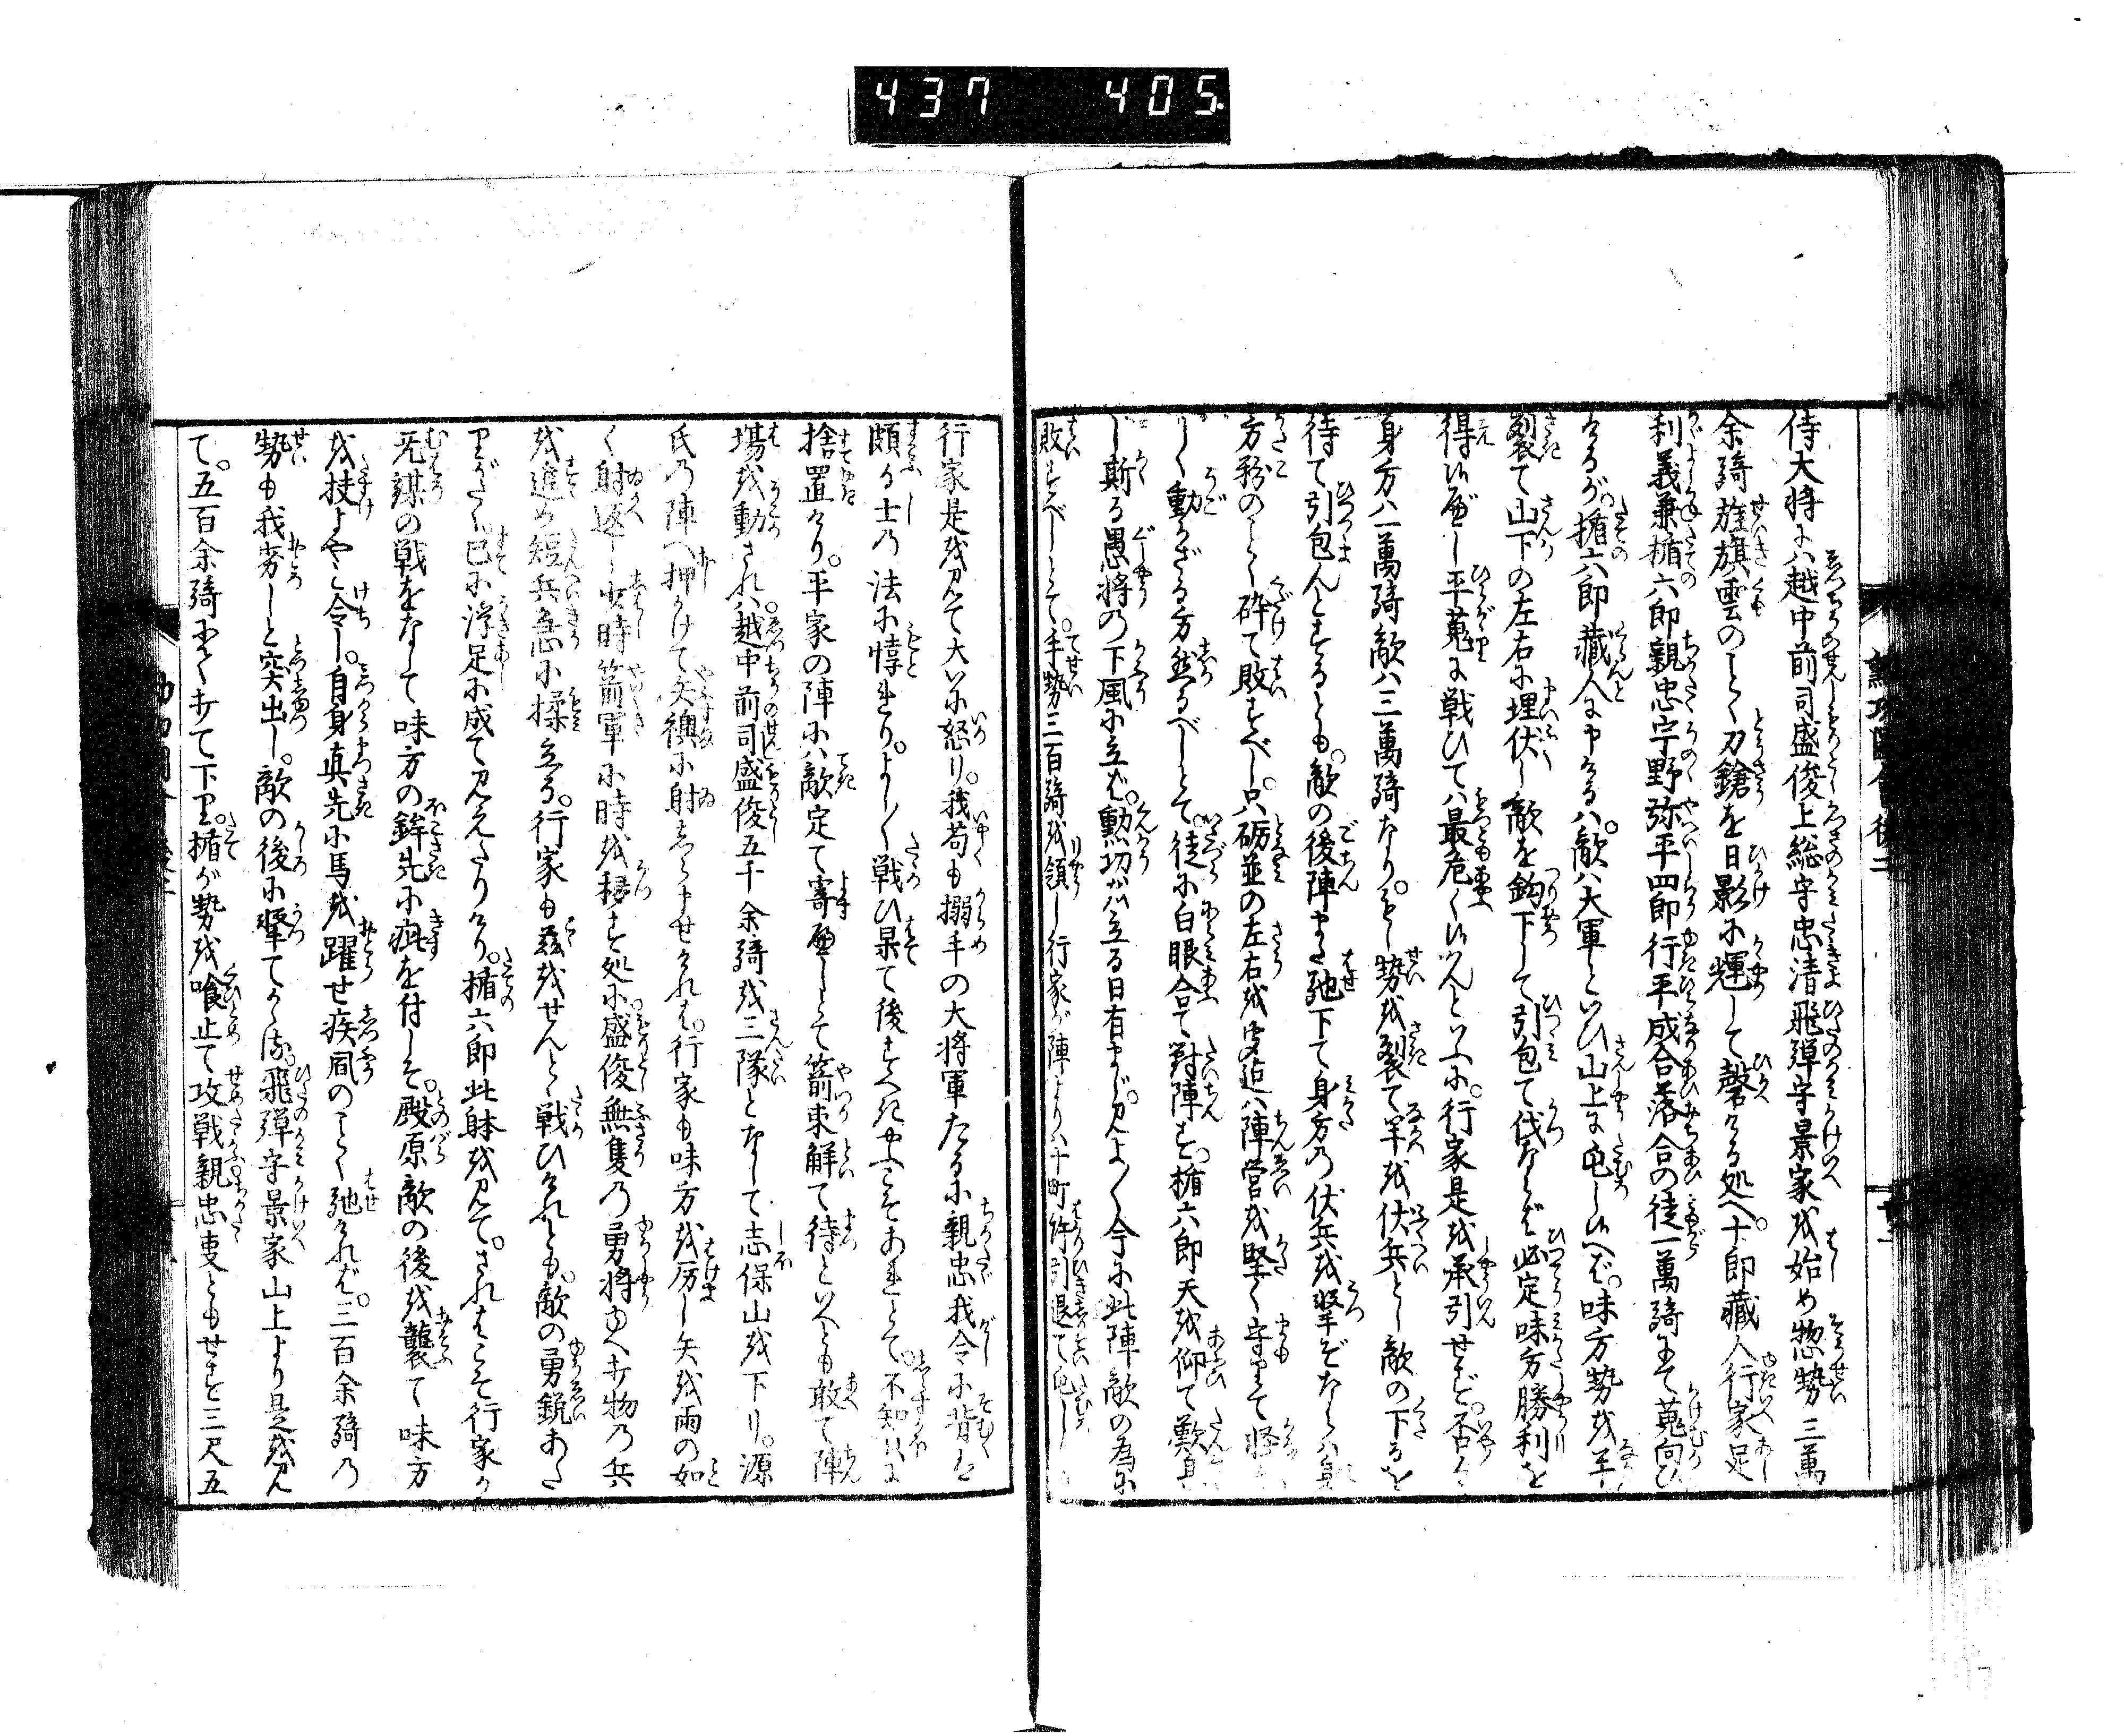 437 405.
侍大将には越中前司盛俊上総守忠清飛弾守景家を始め惣勢三萬
余騎旌旗雲のごとく刀鎗を日影に輝して磬る処へ十郎蔵人行家足
利義兼楯六郎親忠宇野弥平四郎行平成合落合の徒一萬騎にて蒐向ひ
けるが。楯六郎蔵人に申けるは。敵は大軍といひ山上に屯し候へば。味方勢を
裂て山下の左右に埋伏し敵を鈎下して引包て伐ならば必定味方勝利を
得候べし平蒐に戦ひては最危く候はんといふに。行家是を承引せず。否々
身方八一萬騎敵八三萬騎なり。勢を裂て半を伏兵とし敵の下るを
待て引包んとするとも。敵の後陣また馳下て身方の伏兵を撃ずならば身
方粉のごとく砕て敗すべし。只砺並の左右を攻迫八陣営を堅く守て
しく動かざる方然るべしとて。徒に白眼合て對陣す。楯六郎天を仰て歎息
し斯る愚将の下風に立ば。勲功が立る日有まじ。見よ〱今に此陣敵の為に
敗すべしとて。手勢三百騎を領し行家が陣より八千町許引退て屯し
行家是を見て大いに怒り。我苟も搦手の大将軍たるに親忠我令に背は
頗る士の法に悖れり。よし〱戦ひ果て後すべき事こそあれとて。不知顔に
捨置けり。平家の陣には敵定て寄べしとて箭束解て待といへとも敢て陣
場を動されは。越中前司盛俊五千余騎を三隊となして志保山を下り。源
氏の陣へ押かけて矢襖に射しらませければ。行家も味方を励し矢を雨の如
く射返し少時箭軍に時を移す処に。盛俊無隻の勇将ゆへ手物の兵
を進め短兵急に揉立る。行家も茲をせんと戦ひけれとも。敵の勇鋭あた
りがたく已に浮足に成て見えたりけり。楯六郎此躰を見て。さればこそ行家が
无謀の戦をなして味方の鉾先に疵を付しぞ。殿原敵の後を襲て味方
を扶よやと令し。自身真先に馬を躍せ疾風のごとく馳ければ。三百余騎の
勢も我劣しと突出し。敵の後に撃てかゝる。飛弾守景家山上より是を見
て。五百余騎にて下り。楯が勢を喰止て攻戦親忠事ともせず三尺五